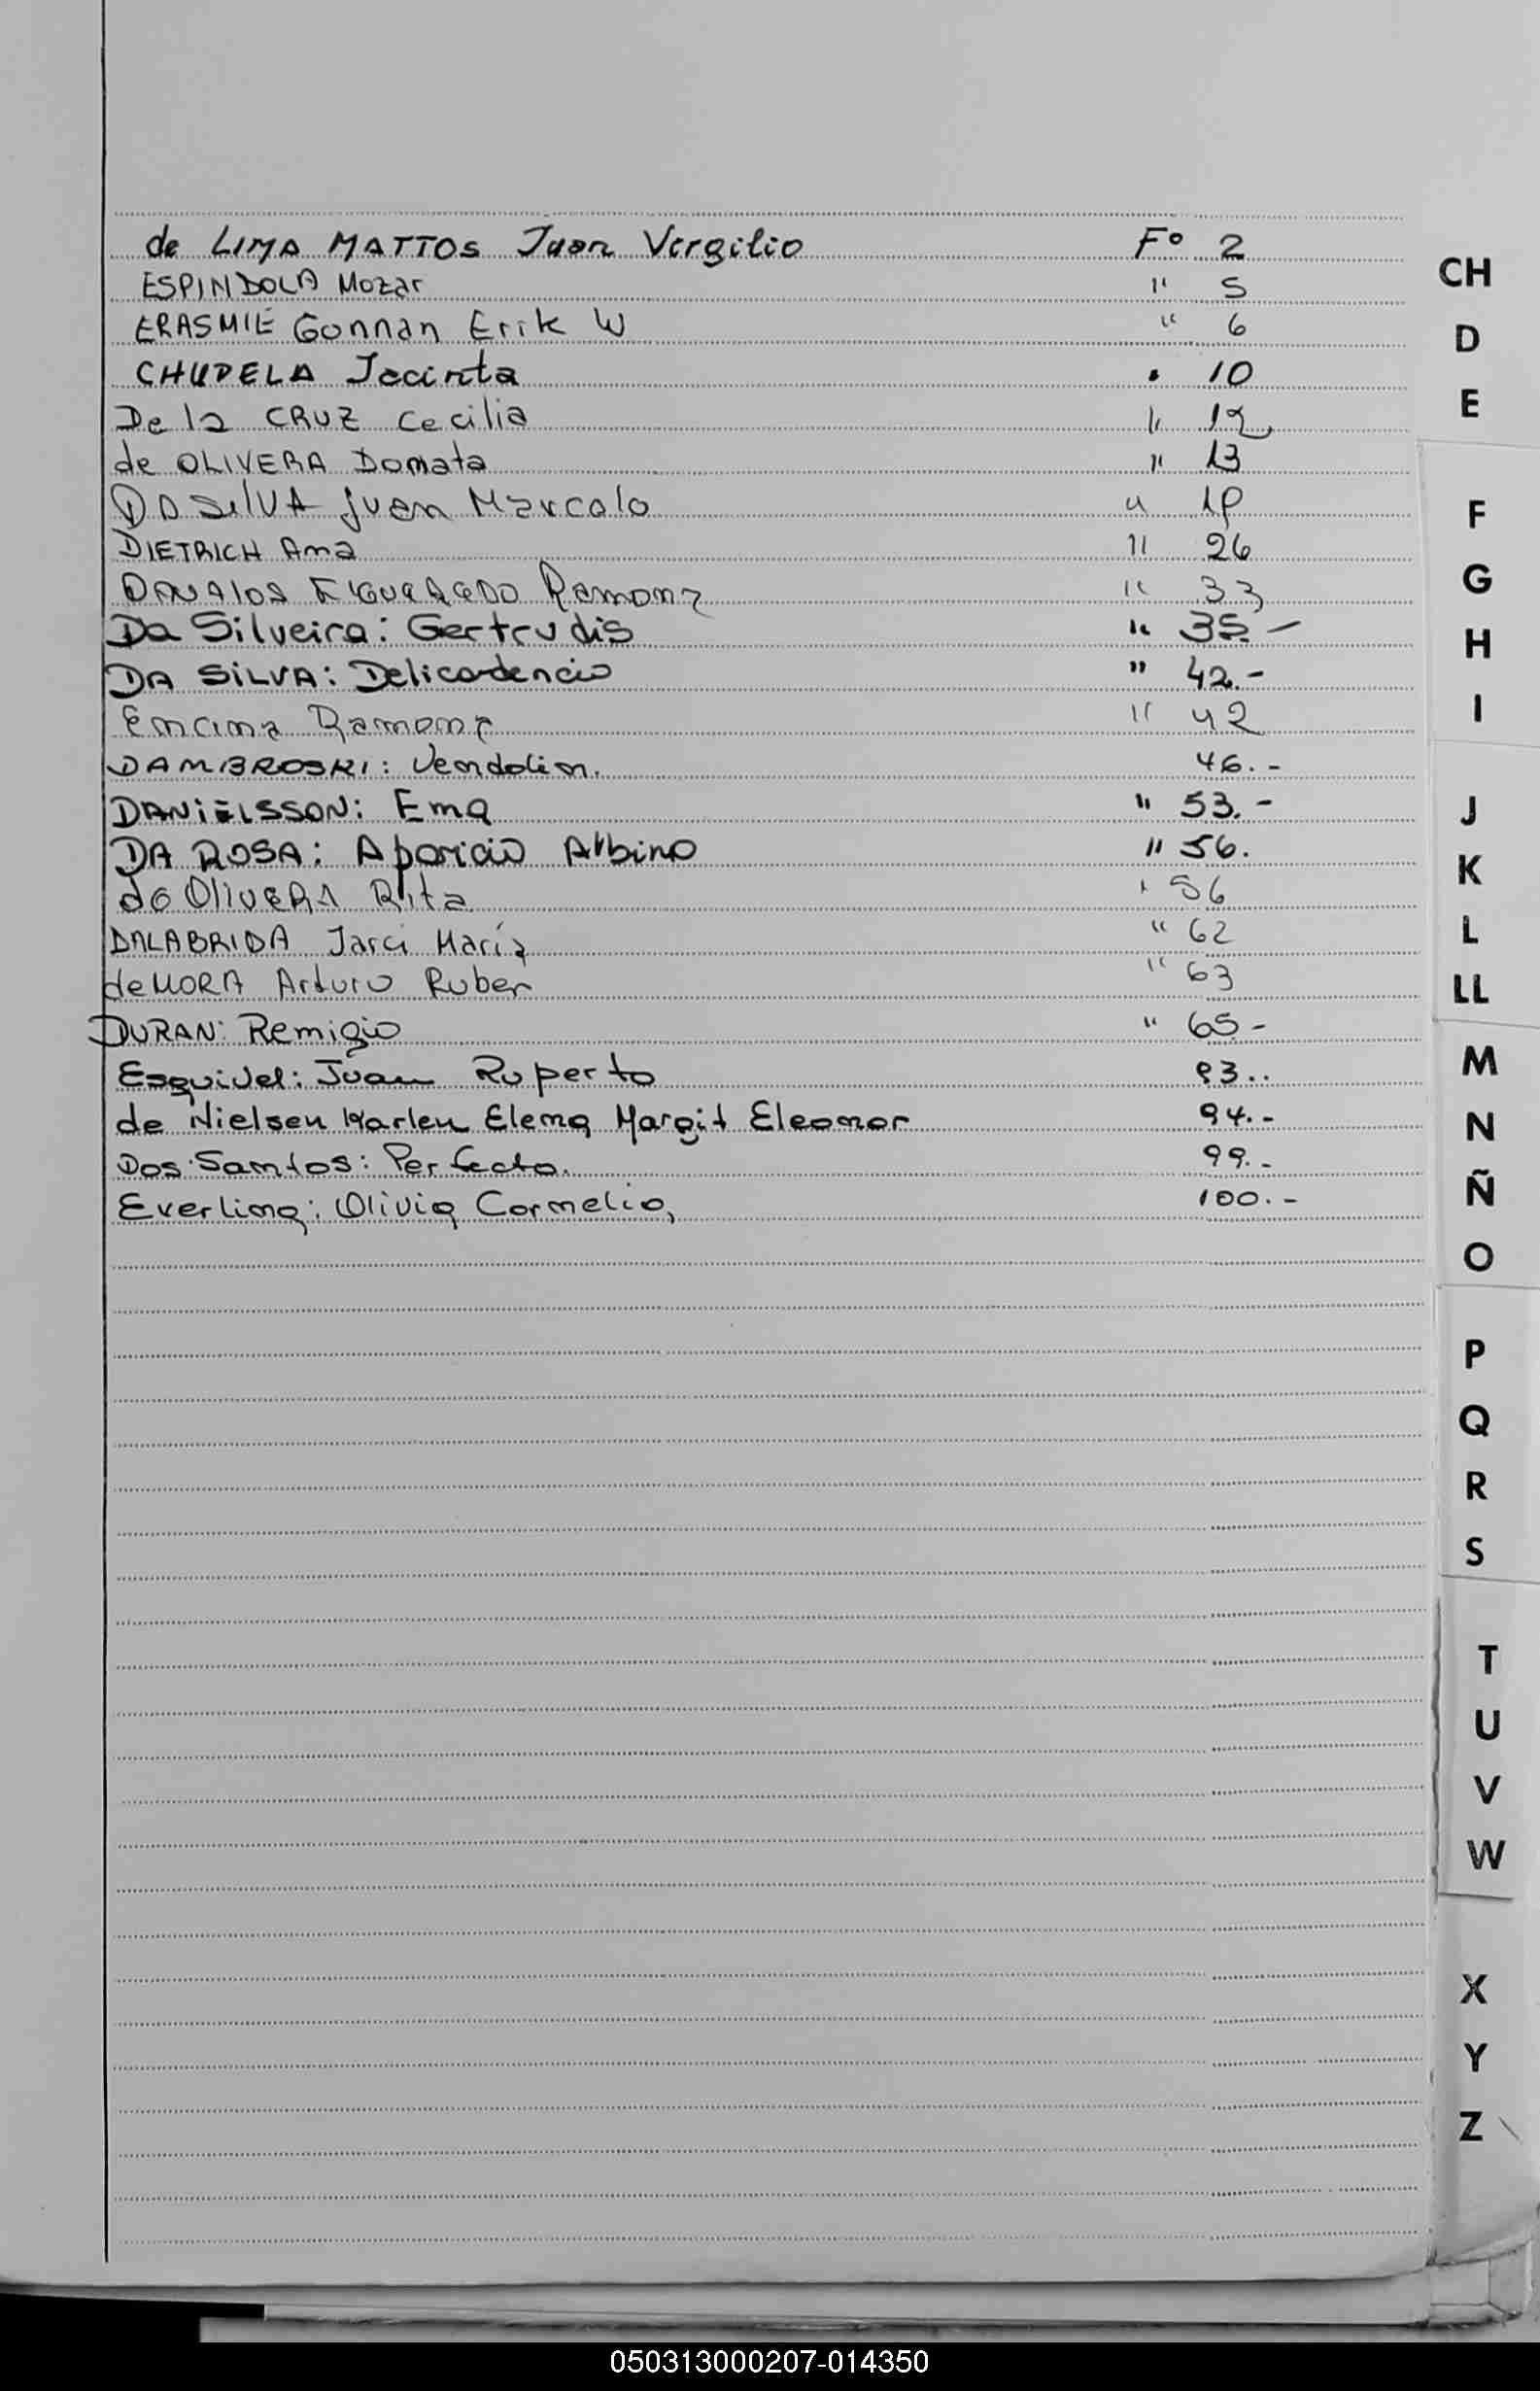 de LIMA MATTOS Juan Virgilio Fº 2
ESPINDOLA Mozar " 5
ERASMIE Gonnan Erik W " 6
CHUDELA Jacinta " 10
De la CRUZ Cecilia " 12
de OLIVERA Donata " 13
DA SilVA Juan Marcalo "
DIETRICH Ana " 26
DAVAlos FIGUEREDO Ramona " 33
Da Silveira: Gertrudis " 35.-
DA SILVA: Delicadencio " 42.-
Encina Ramona " 42
DAMBROSKI: Vendolin. 46.-
DANIELSSON: Ema " 53.-
DA ROSA: Aparicio Albino " 56.
de OliVERA Rita " 56
DALABRIDA Jarci María " 62
de MORA Arturo Ruben " 63
DURAN: Remigio " 65-
Esquivel: Juan Ruperto 93..
de Nielsen Karlen Elena Margit Eleonor 94.-
Dos Santos: Perfecto. 99.-
Everling: Olivia Cornelio, 100.-
CH
D
E
F
G
H
I
J
K
L
LL
M
N
Ñ
O
P
Q
R
S
T
U
V
W
X
Y
Z
050313000207-014350